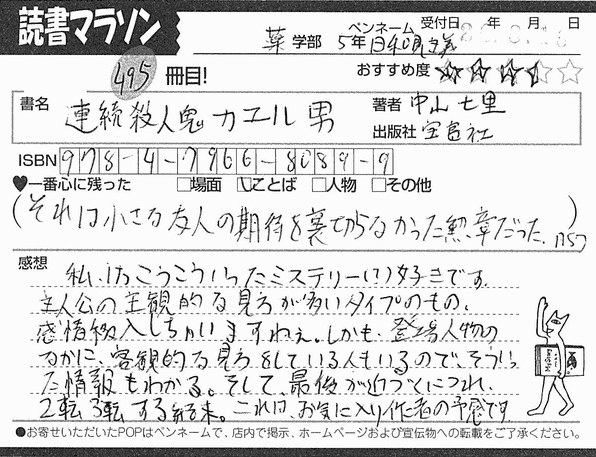 読書マラソン
ペンネーム 受付日 年 月 日
薬学部 5年
495冊目!
おすすめ度 ★★★☆☆
書名 連続殺人鬼カエル男
著者 中山七里
出版社 宝島社
ISBN 978-4-7966-8089-9
♥一番心に残った □場面 □ことば □人物 □その他
(それは小さな友人の期待を裏切らなかった勲章だった。P157)
感想
私、けっこうこういったミステリー(?)好きです。
主人公の主観的な見方が多いタイプのもの、
感情移入しちゃいますねぇ。しかも、登場人物の
なかに、客観的な見方をしている人もいるので、そうい
った情報もわかる。そして、最後が近づくにつれ、
2転3転する結末。これは、お気に入り作者の予感です。
●お寄せいただいたPOPはペンネームで、店内で掲示、ホームページおよび宣伝物への転載をご了承ください。